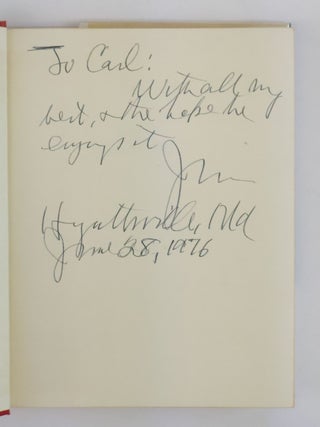 To Carl:
With all my
best, & the hope he
enjoys it
John
Hyattsville, Md
June 28, 1976